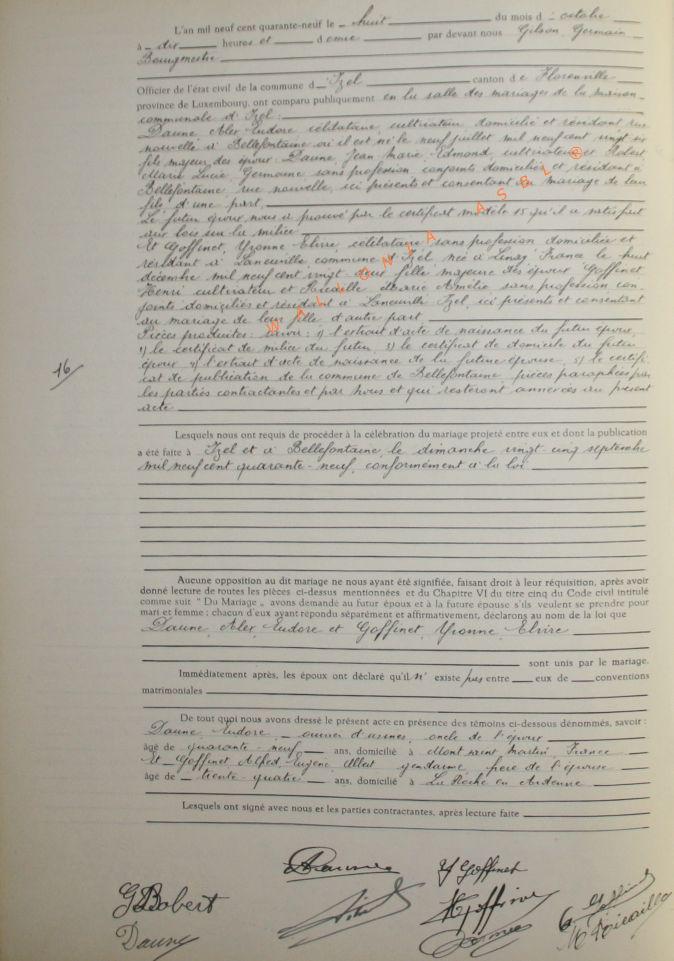 L'an mil neuf cent quarante-neuf le huit du mois d'octobre
à dix heures et demie par devant nous Gilson, Germain
Bourgmestre
Officier de l'état civil de la commune d'Izel canton de Florenville
province de Luxembourg, ont comparu publiquement en la salle des mariages de la maison
communale d'Izel :
Daune, Alex Eudore célibataire, cultivateur domicilié et résidant rue
nouvelle à Bellefontaine où il est né le neuf juillet mil neuf cent vingt six
fils majeur des époux Daune, Jean Marie Edmond, cultivateur et Robert
Marie Lucie, Germaine sans profession conjoints domiciliés et résidant à
Bellefontaine rue nouvelle, ici présents et consentant au mariage de leur
fils d'une part,
Le futur époux nous a prouvé par le certificat modèle 15 qu'il a satisfait
aux lois sur la milice
Et Goffinet, Yvonne Elvire, célibataire sans profession domiciliée et
résidant à Laneuville commune d'Izel née à Linay, France le huit
décembre mil neuf cent vingt deux fille majeure des époux Goffinet
Henri cultivateur et Pricaille Marie Amélie sans profession con-
joints domiciliés et résidant à Laneuville Izel, ici présents et consentant
au mariage de leur fille d'autre part
Pièces produites : savoir : 1) l'extrait d'acte de naissance du futur époux,
2) le certificat de milice du futur 3) le certificat de domicile du futur
époux 4) l'extrait d'acte de naissance de la future épouse, 5) le certifi-
cat de publication de la commune de Bellefontaine, pièces paraphées par
les parties contractantes et par nous et qui resteront annexées au présent
acte
16
WALLONIA ASBL ©
Lesquels nous ont requis de procéder à la célébration du mariage projeté entre eux et dont la publication
a été faite à Izel et à Bellefontaine, le dimanche vingt-cinq septembre
mil neuf cent quarante-neuf, conformément à la loi
Aucune opposition au dit mariage ne nous ayant été signifiée, faisant droit à leur réquisition, après avoir
donné lecture de toutes les pièces ci-dessus mentionnées et du Chapitre VI du titre cinq du Code civil intitulé
comme suit " Du Mariage „ avons demandé au futur époux et à la future épouse s'ils veulent se prendre pour
mari et femme : chacun d'eux ayant répondu séparément et affirmativement, déclarons au nom de la loi que
Daune, Alex Eudore et Goffinet, Yvonne, Elvire
sont unis par le mariage.
Immédiatement après, les époux ont déclaré qu'il n'existe pas entre eux de conventions
matrimoniales
De tout quoi nous avons dressé le présent acte en présence des témoins ci-dessous dénommés, savoir :
Daune, Eudore ouvrier d'usines, oncle de l'époux
âgé de quarante-neuf ans, domicilié à Mont saint Martin, France
Et Goffinet, Alfred, Eugène, Albert gendarme, frère de l'épouse
âgé de trente-quatre ans, domicilié à La Roche en Ardenne
Lesquels ont signé avec nous et les parties contractantes, après lecture faite
Daune
Y Goffinet
G Robert
Daune